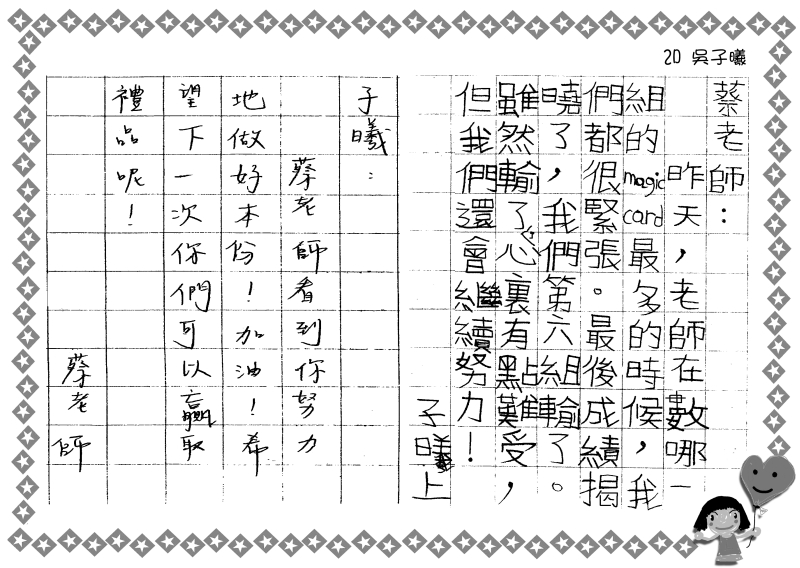 20 吳子曦
蔡老師：
昨天，老師在數哪一
組的magic card最多的時候，我
們都很緊張。最後成績揭
曉了，我們第六組輸了。
雖然輸了，心裏有點難受，
但我們還會繼續努力！
子曦上
子曦：
蔡老師看到你努力
地做好本份！加油！希
望下一次你們可以贏取
禮品呢！
蔡老師